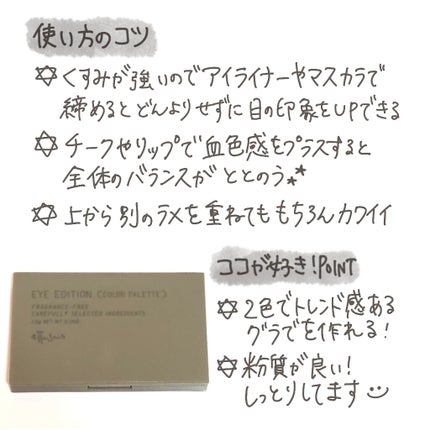 使い方のコツ
くすみが強いのでアイライナーやマスカラで
締めると どんよりせずに 目の印象をUPできる
チークやリップで血色感をプラスすると
全体のバランスが ととのう
上から別のラメを重ねても もちろん カワイイ
ココが好き!POINT
EYE EDITION (COLOR PALETTE)
FRAGRANCE-FREE
CAREFULLY SELECTED INGREDIENTS
ettusais
2色でトレンド感ある
グラデを作れる!
粉質が良い!
しっとりしてます